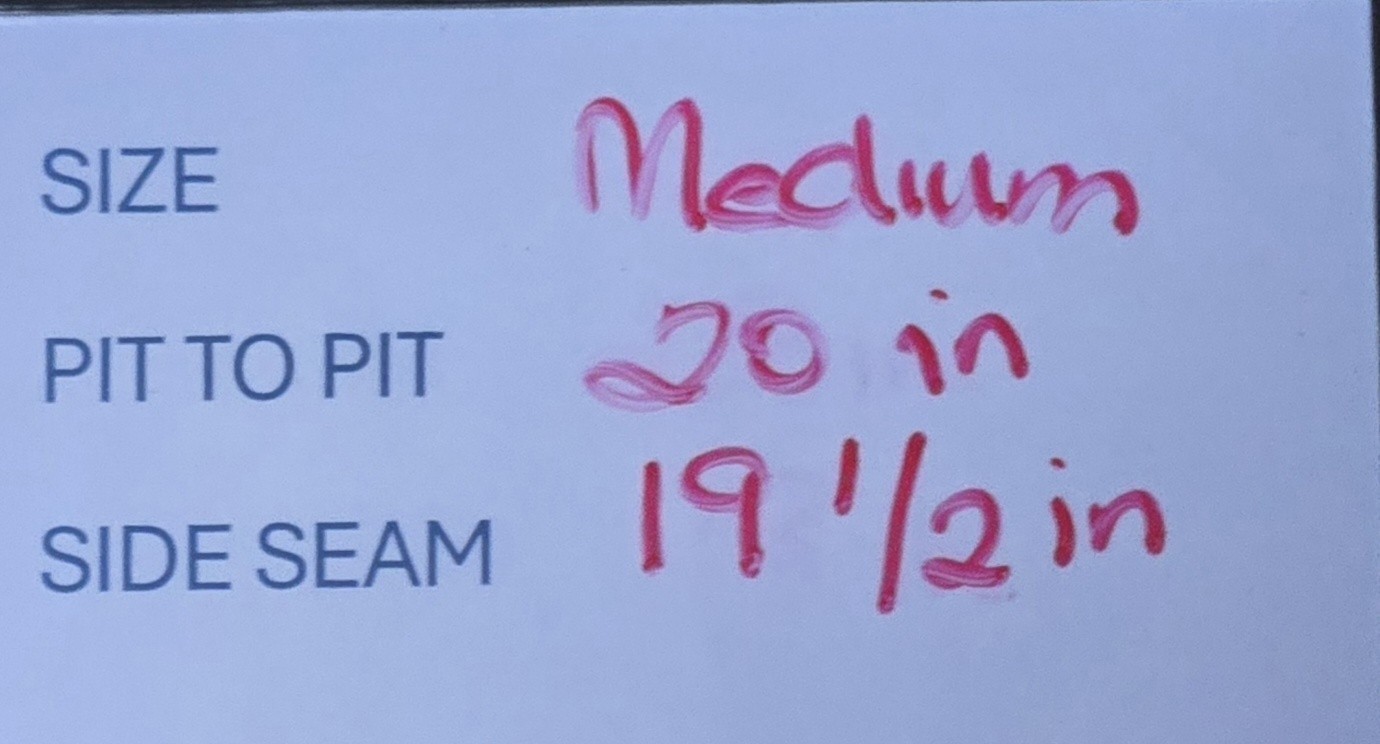 SIZE Medium
PIT TO PIT 20 in
SIDE SEAM 19 1/2 in